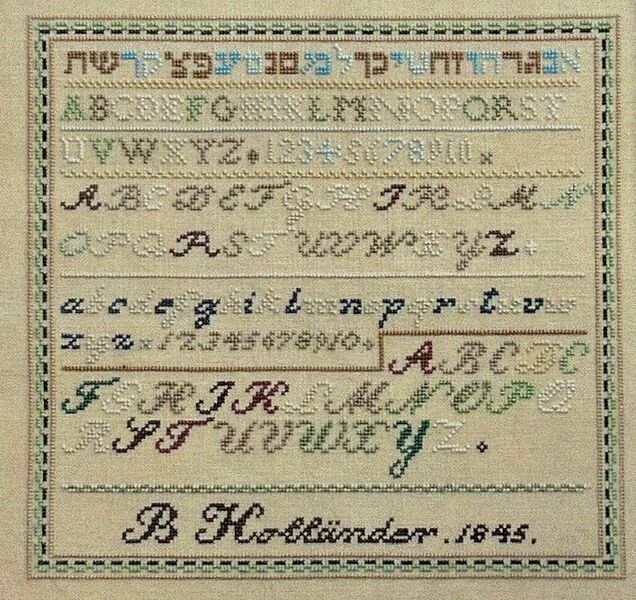 אבגדהוזחטיכךלמםנסעפצקרשת
ABCDEFGHIKLMNOPQRST
UVWXYZ. 12345678910 ×
ABCDEFGHIKLMN
OPQRSTUVWXYZ.
abcdefghiklmnopqrstuvw
xyz × 12345678910.
ABCDE
FGHIKLMNOPQ
RSTUVWXYZ.
B Holländer. 1845.